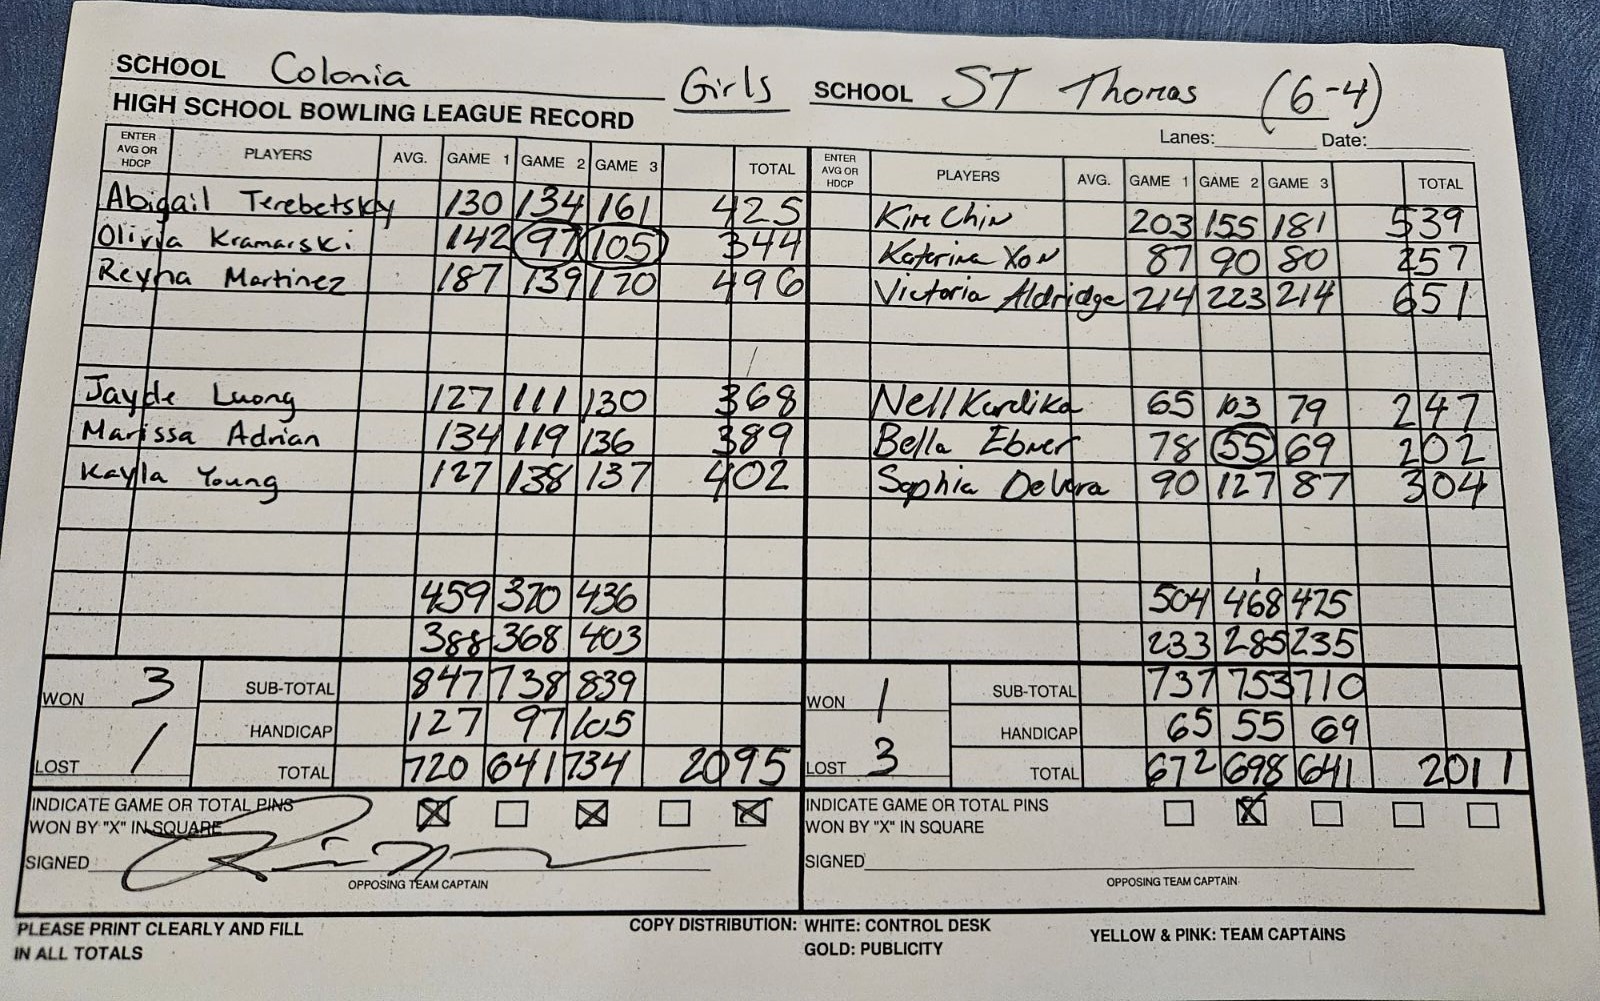 SCHOOL Colonia Girls SCHOOL ST Thomas (6-4)
HIGH SCHOOL BOWLING LEAGUE RECORD Lanes: Date:
ENTER AVG OR HDCP PLAYERS AVG. GAME 1 GAME 2 GAME 3 TOTAL ENTER AVG OR HDCP PLAYERS AVG. GAME 1 GAME 2 GAME 3 TOTAL
Abigail Terebetsky 130 134 161 425 Kire Chin 203 155 181 539
Olivia Kramarski 142 97 105 344 Katerina Xon 87 90 80 257
Reyna Martinez 187 139 170 496 Victoria Aldridge 214 223 214 651
Jayde Luong 127 111 130 368 Nell Kardika 65 103 79 247
Marissa Adrian 134 119 136 389 Bella Ebner 78 55 69 202
Kayla Young 127 138 137 402 Sophia DeVera 90 127 87 304
459 370 436 504 468 475
388 368 403 233 285 235
WON 3 SUB-TOTAL 847 738 839 WON 1 SUB-TOTAL 737 753 710
HANDICAP 127 97 105 HANDICAP 65 55 69
LOST 1 TOTAL 720 641 734 2095 LOST 3 TOTAL 672 698 641 2011
INDICATE GAME OR TOTAL PINS INDICATE GAME OR TOTAL PINS
WON BY "X" IN SQUARE X X X WON BY "X" IN SQUARE X
SIGNED SIGNED
OPPOSING TEAM CAPTAIN OPPOSING TEAM CAPTAIN
PLEASE PRINT CLEARLY AND FILL COPY DISTRIBUTION: WHITE: CONTROL DESK YELLOW & PINK: TEAM CAPTAINS
IN ALL TOTALS GOLD: PUBLICITY